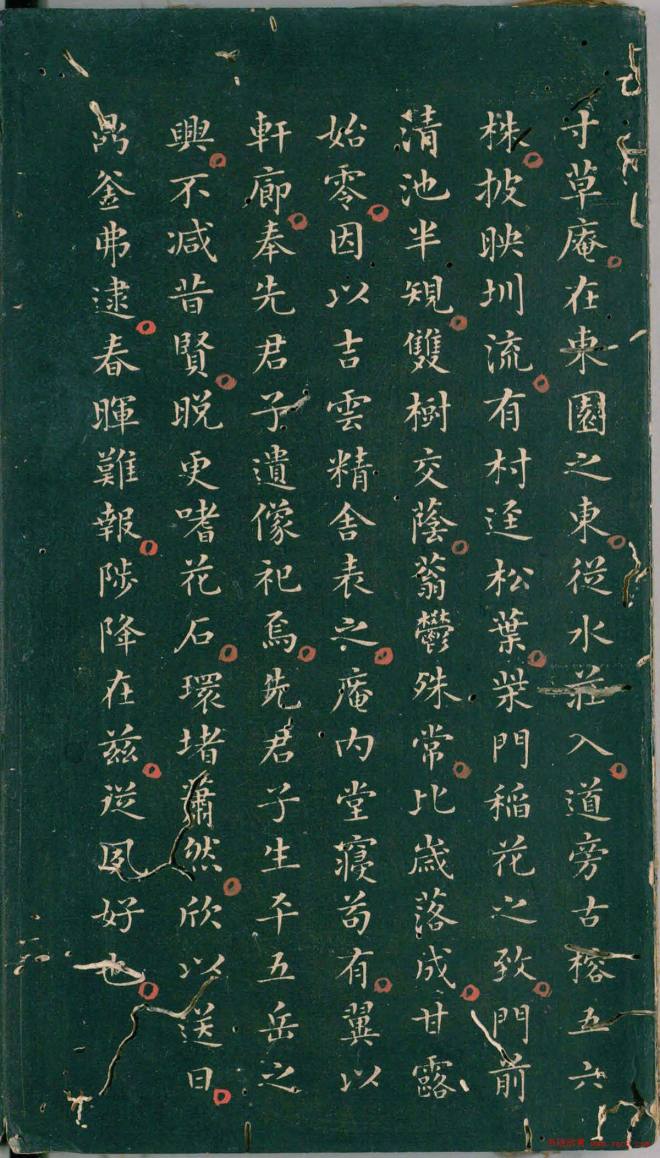 寸草庵在東園之東從水莊入道旁古榕五六
株披映圳流有村逕松葉柴門稲花之致門前
清池半規雙樹交蔭蓊鬱殊常比歲落成甘露
始零因以吉雲精舍表之庵內堂寢苟有翼以
軒廊奉先君子遺像祀焉先君子生平五岳之
興不减昔賢晚更嗜花石環堵蕭然欣以送日
鼎釜弗逮春暉難報陟降在兹從夙好也